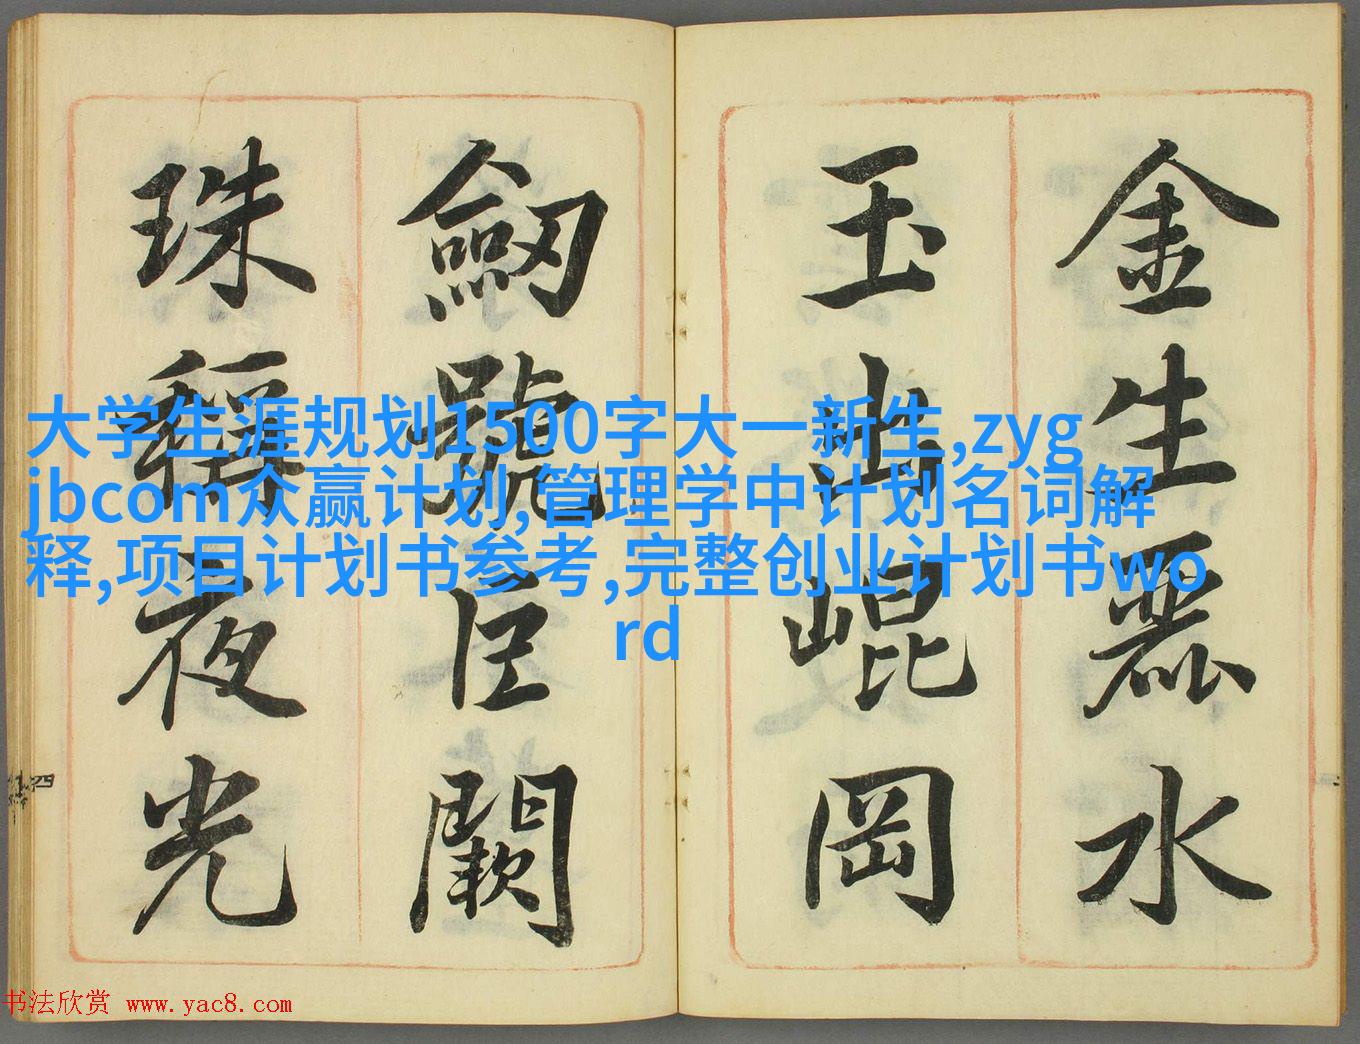 金生麗水
玉出崐岡
劒號巨闕
珠稱夜光
大学生涯规划1500字大一新生,zyg
jbcom众赢计划,管理学中计划名词解
释,项目计划书参考,完整创业计划书wo
rd
书法欣赏 www.yac8.com